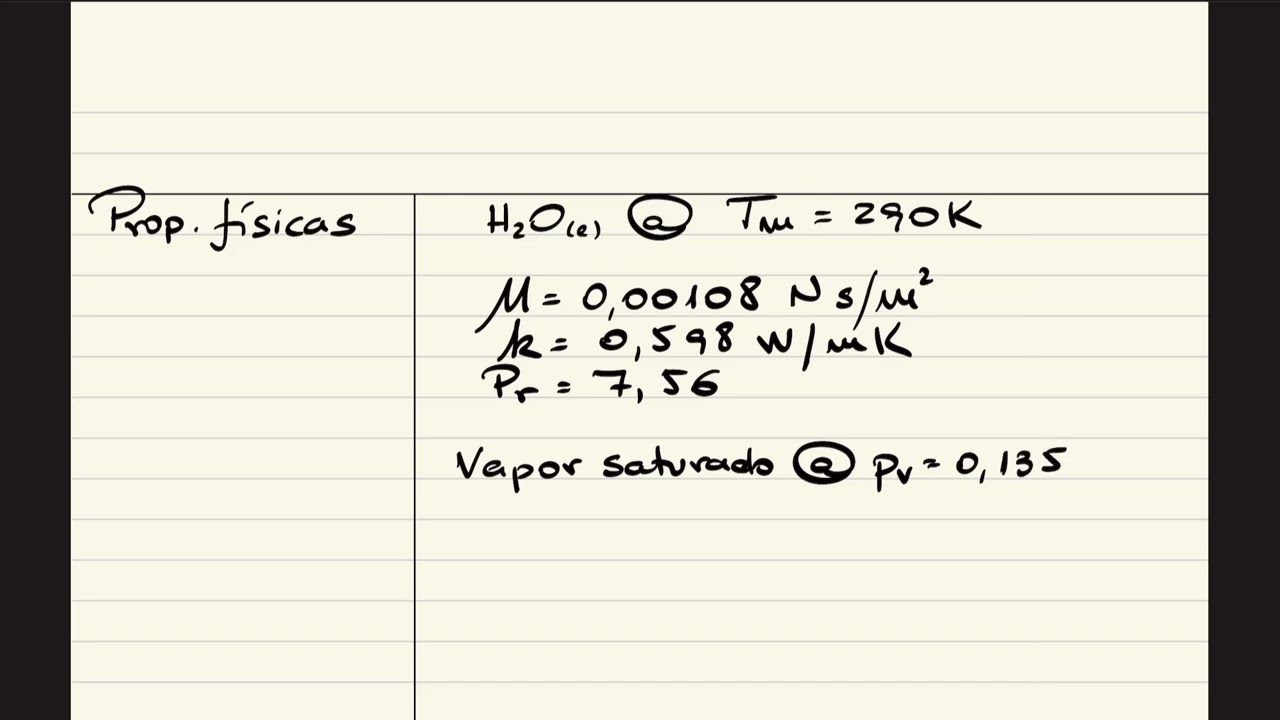 Prop. físicas
H₂O(ℓ) @ Tm = 290K
μ = 0,00108 N s/m²
k = 0,598 W/mK
Pr = 7,56
Vapor saturado @ pv = 0,135